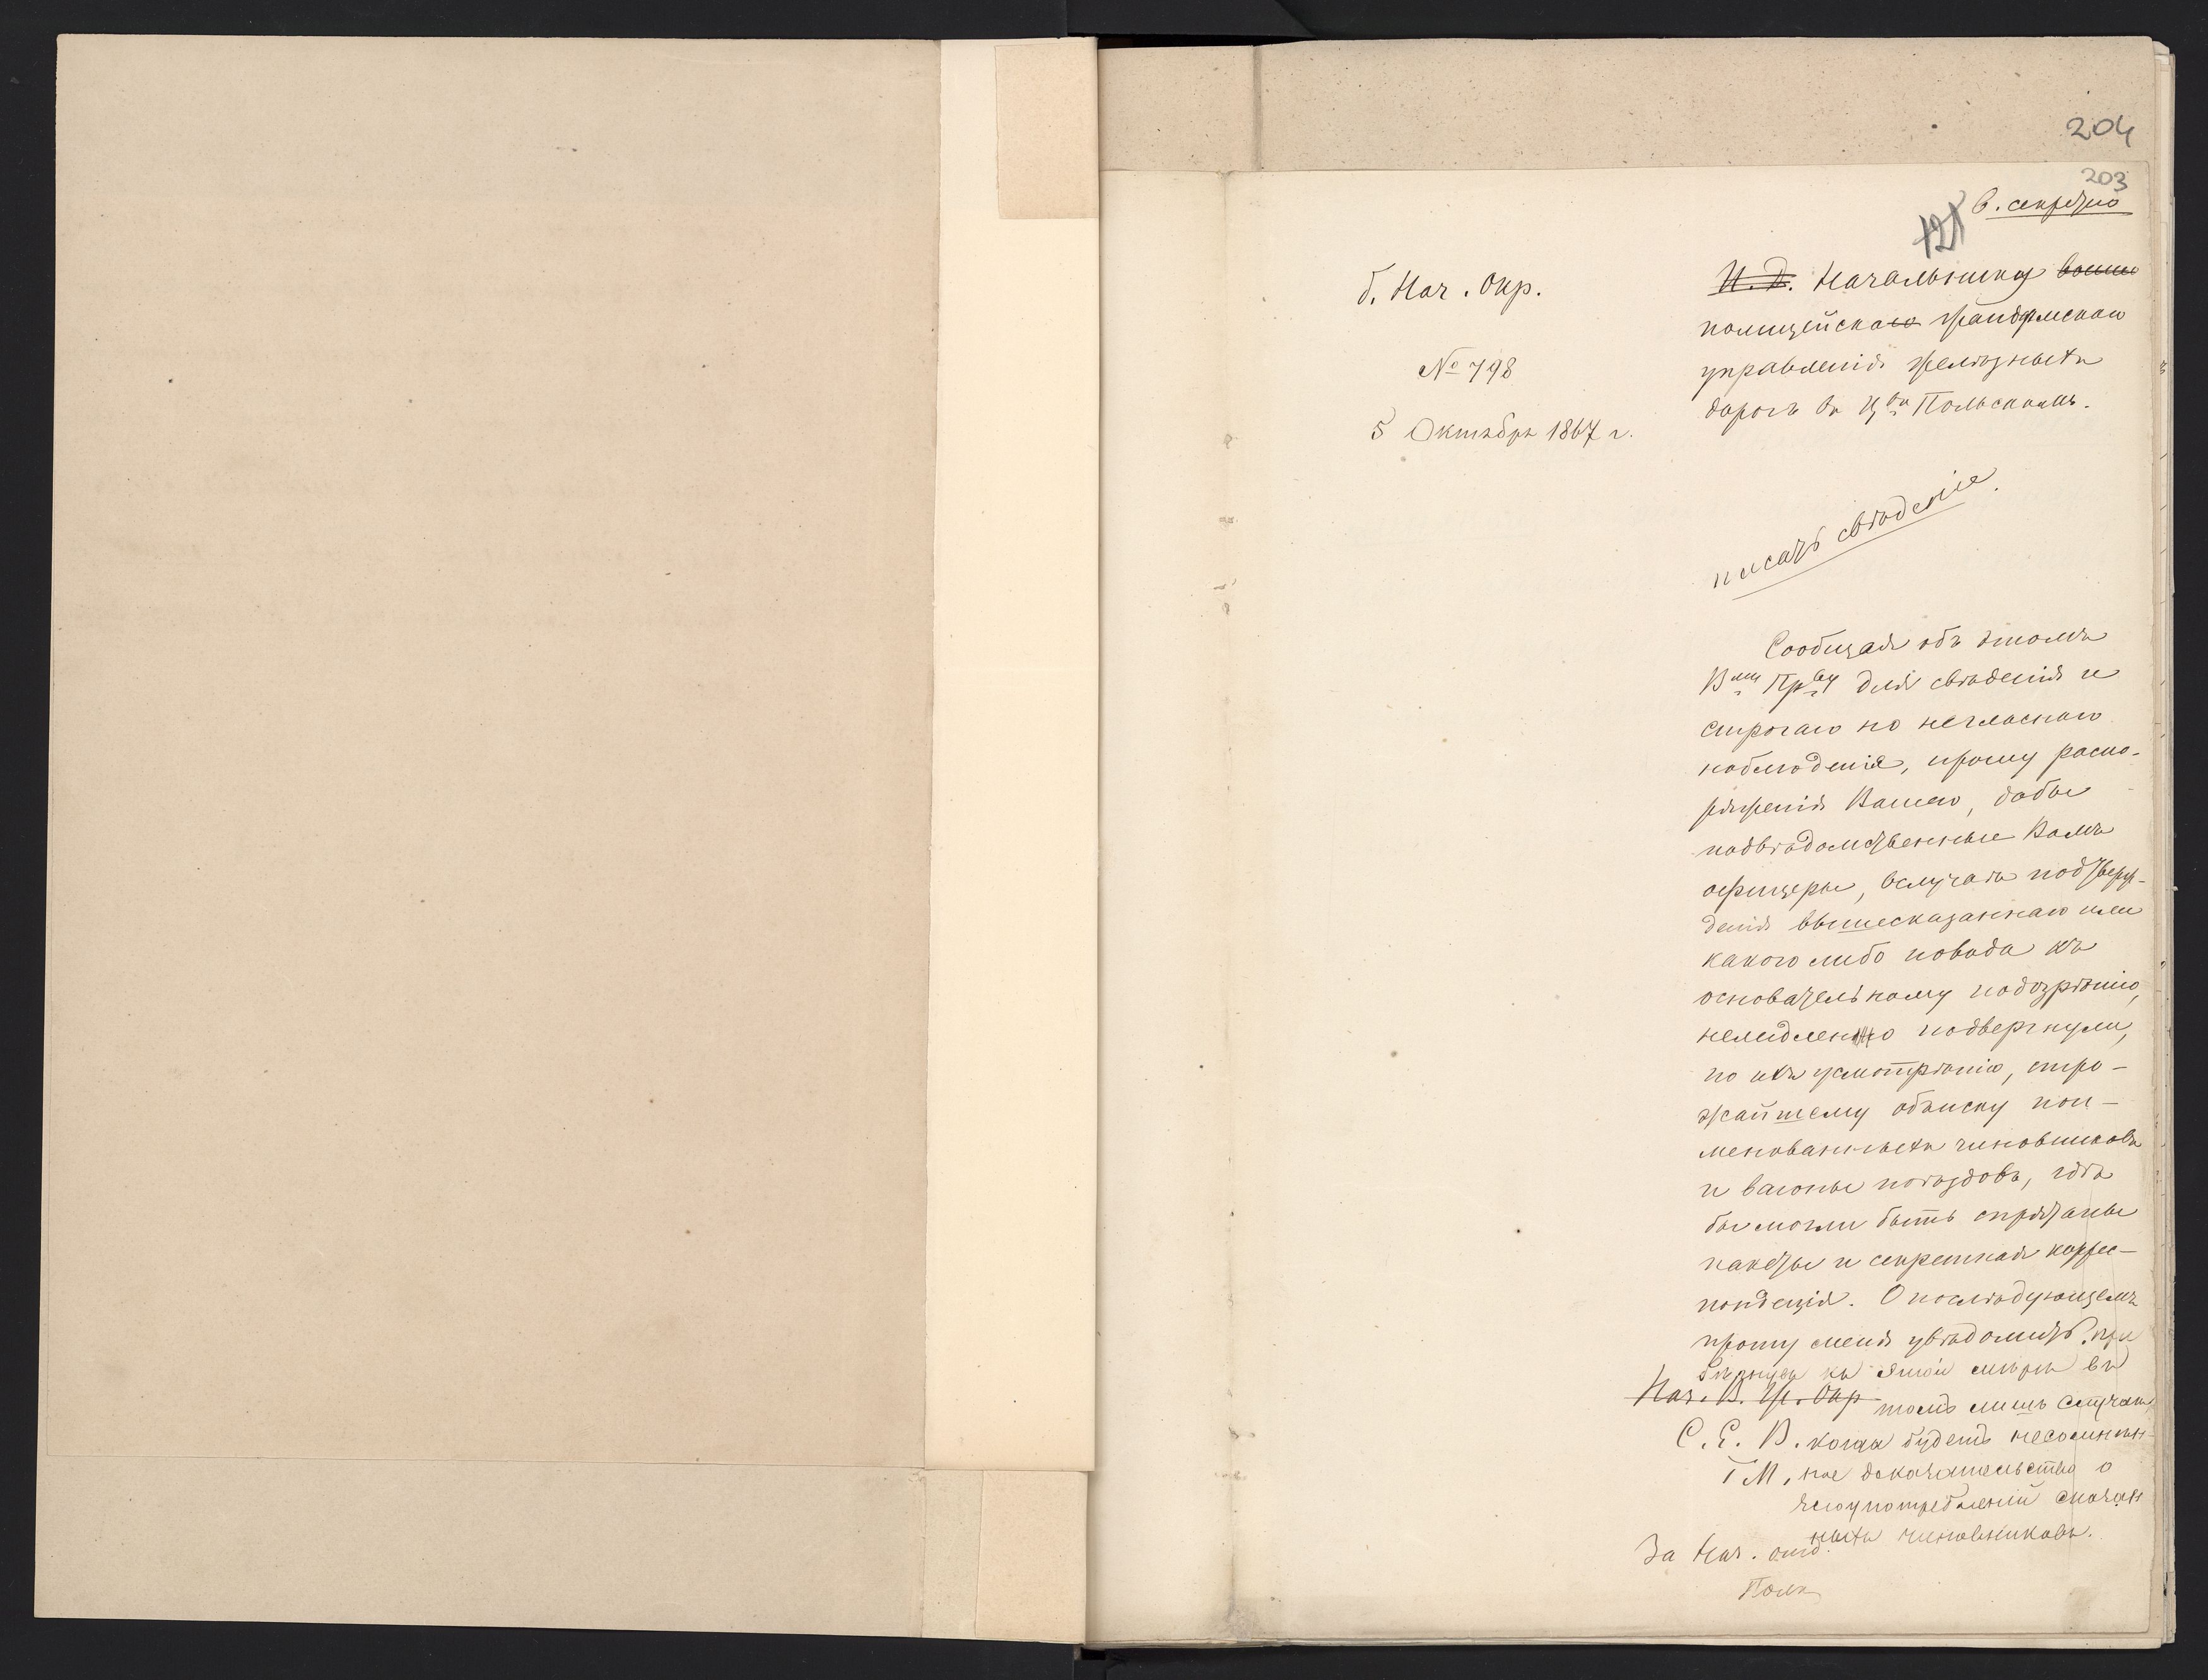 204
203
в. секретно
121
б. Нач. Окр.
№ 798
5 Октября 1867 г.
И. Д. Начальнику
полицейскаго жандармскаго
управленія желѣзныхъ
дорогъ въ Ц.вѣ Польскомъ.
писать свѣденіе.
Сообщая объ этомъ
В.му Пр.ву для свѣденія и
строгаго но негласнаго
наблюденія, прошу распо-
ряженія Вашего, дабы
подвѣдомственные Вамъ
офицеры, вслучаѣ подтверж-
денія вышесказаннаго или
какого либо повода къ
основательному подозрѣнію,
немедленно подвергнули,
по ихъ усмотрѣнію, стро-
жайшему обыску пои-
менованныхъ чиновниковъ
и вагоны поѣздовъ, гдѣ
бы могли быть спрятаны
пакеты и секретная коррес-
понденція. О послѣдующемъ
прошу меня увѣдомить, при
къ этой мѣрѣ въ
Нач. В. Ж. Окр
томъ лишь случаѣ,
С. Е. В. когда будетъ несомнѣн-
Г М, ное доказательство о
злоупотребленіи сказан
ныхъ чиновниковъ.
За Нач. отд.
Полк